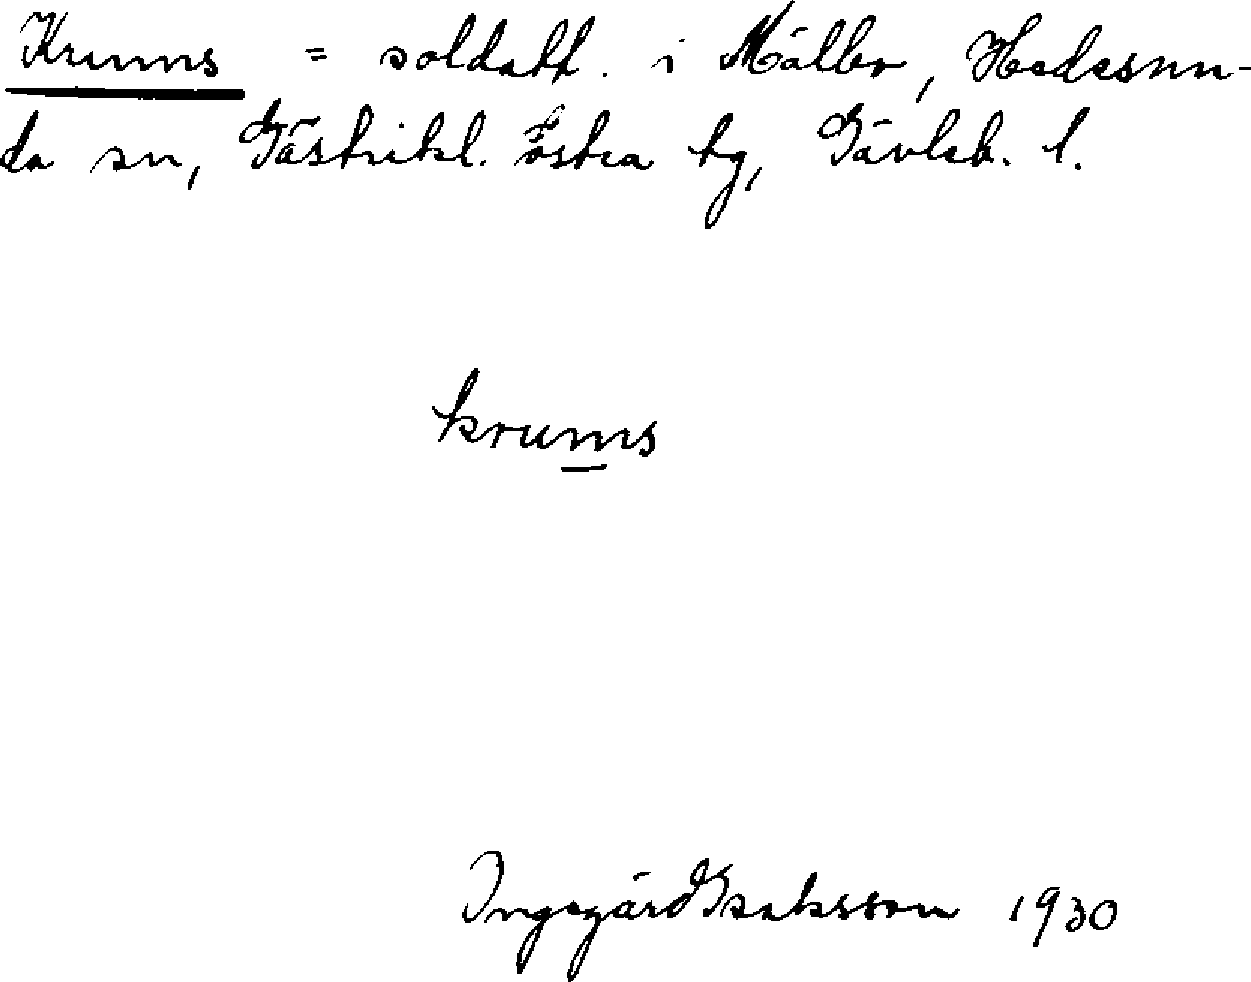 Krums = soldatt. i Mällbo, Hedesun-
da sn, Gästrikl. östra tg, Gävleb. l.
krums
Ingegärd Isaksson 1930